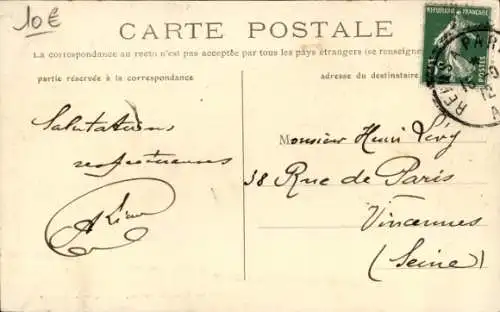 10€
CARTE POSTALE
La correspondance au recto n'est pas acceptée par tous les pays étrangers (se renseigne
partie réservée à la correspondance
adresse du destinataire
REPUBLIQUE FRANÇAISE
POSTES
PARIS
Salutations
respectueuses
Monsieur Henri Lévy
38 Rue de Paris
Vincennes
(Seine)